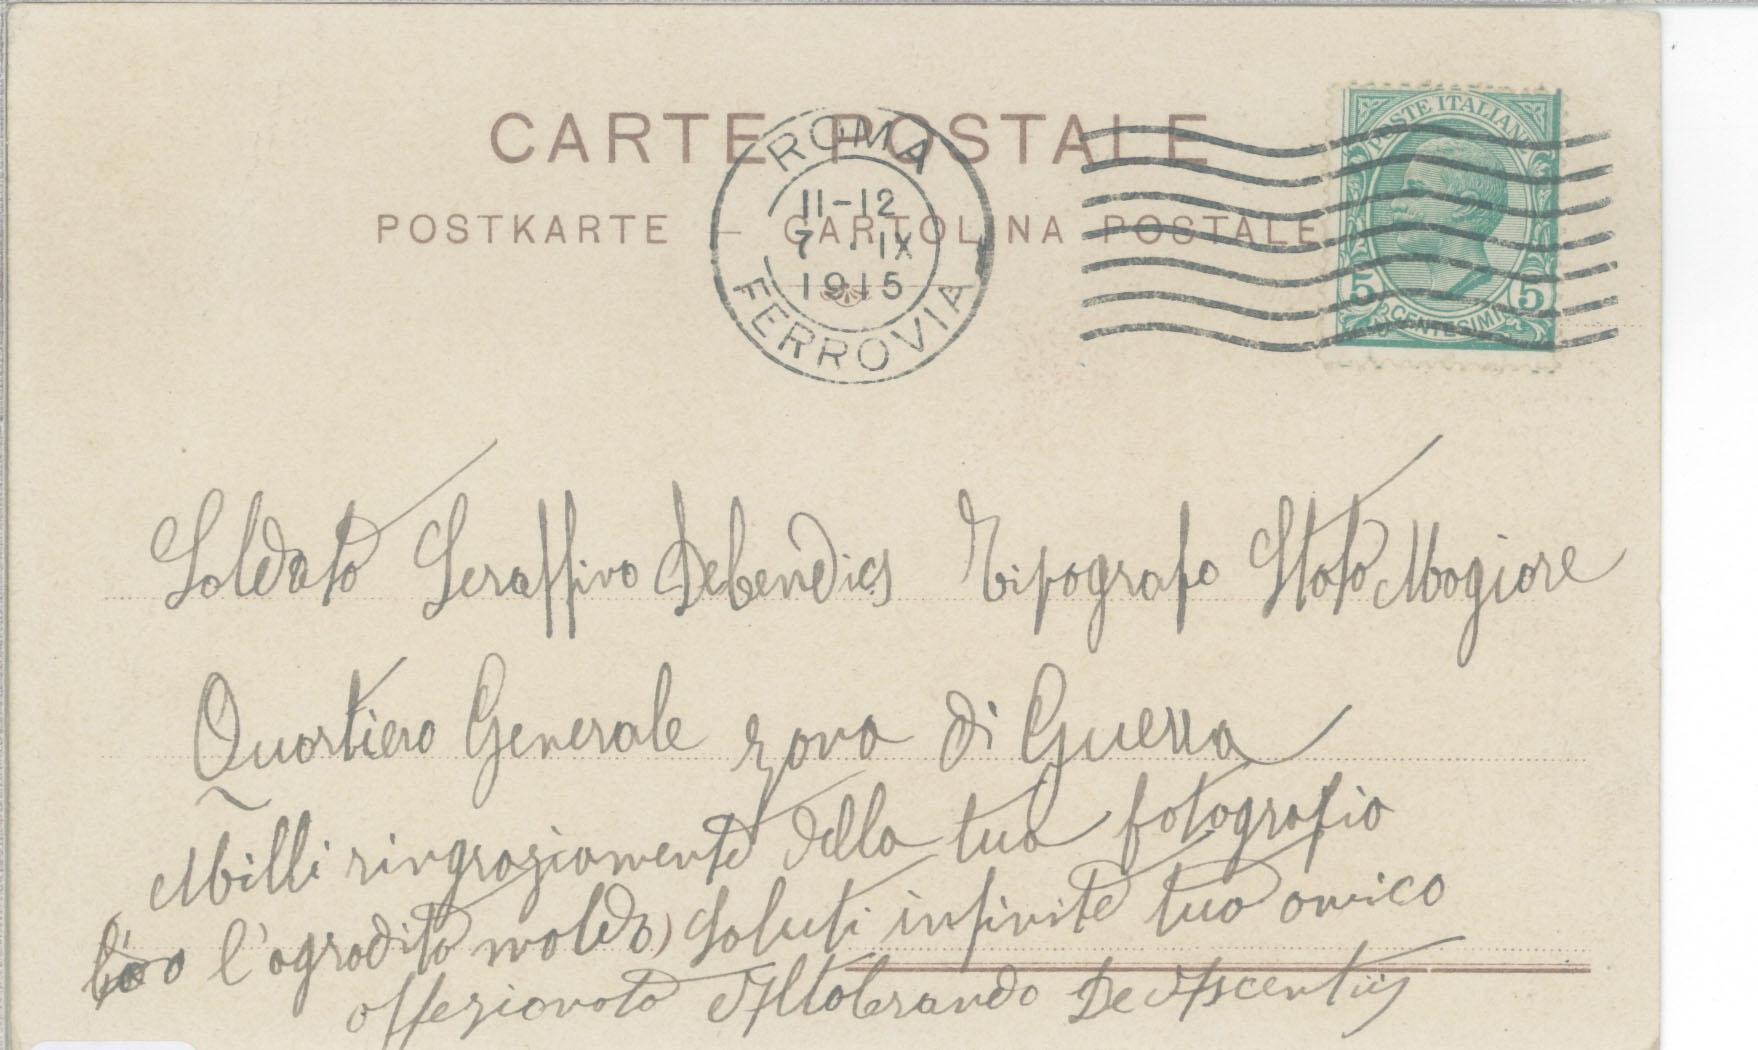 CARTE POSTALE
POSTKARTE – CARTOLINA POSTALE
ROMA
11-12
7 · IX
1915
FERROVIA
POSTE ITALIANE
5 5
CENTESIMI
Soldato Seraffino Debendics Tipografo Stato Magiore
Quartiero Generale zona di Guerra
Milli ringraziamente della tua fotografia
o l'agradita molda) Saluti infinite tuo amico
affezionato Altobrando De Ascentiis